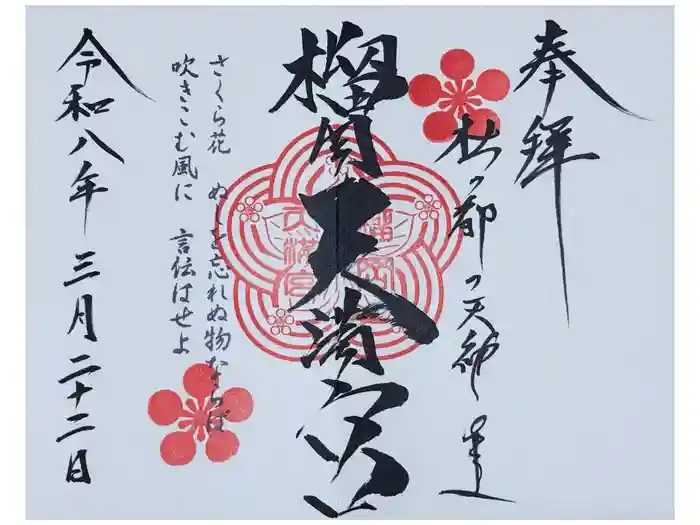 奉拝
杜の都の天神さま
榴岡天満宮
さくら花 ぬしを忘れぬ物ならば
吹きこむ風に 言伝はせよ
令和八年 三月二十二日
榴岡
天満宮